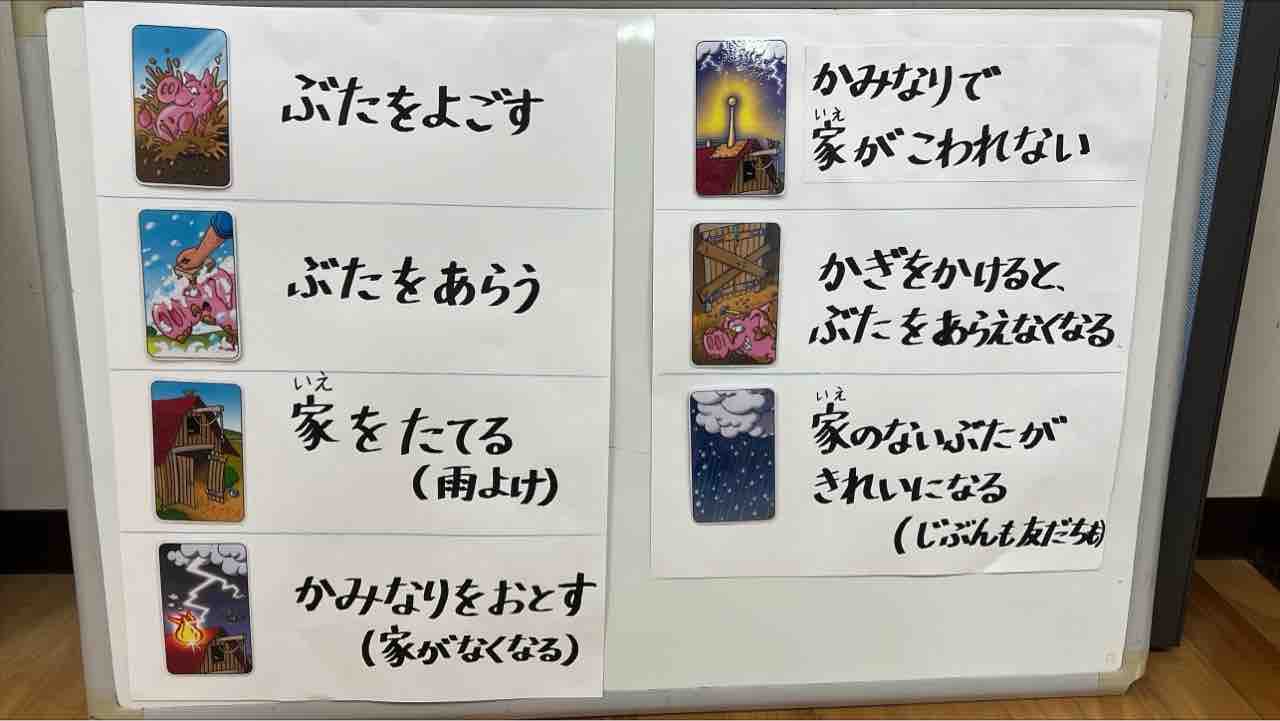 ぶたをよごす
ぶたをあらう
いえ
家をたてる
(雨よけ)
かみなりをおとす
(家がなくなる)
かみなりで
いえ
家がこわれない
かぎをかけると、
ぶたをあらえなくなる
いえ
家のないぶたが
きれいになる
(じぶんも友だちも)